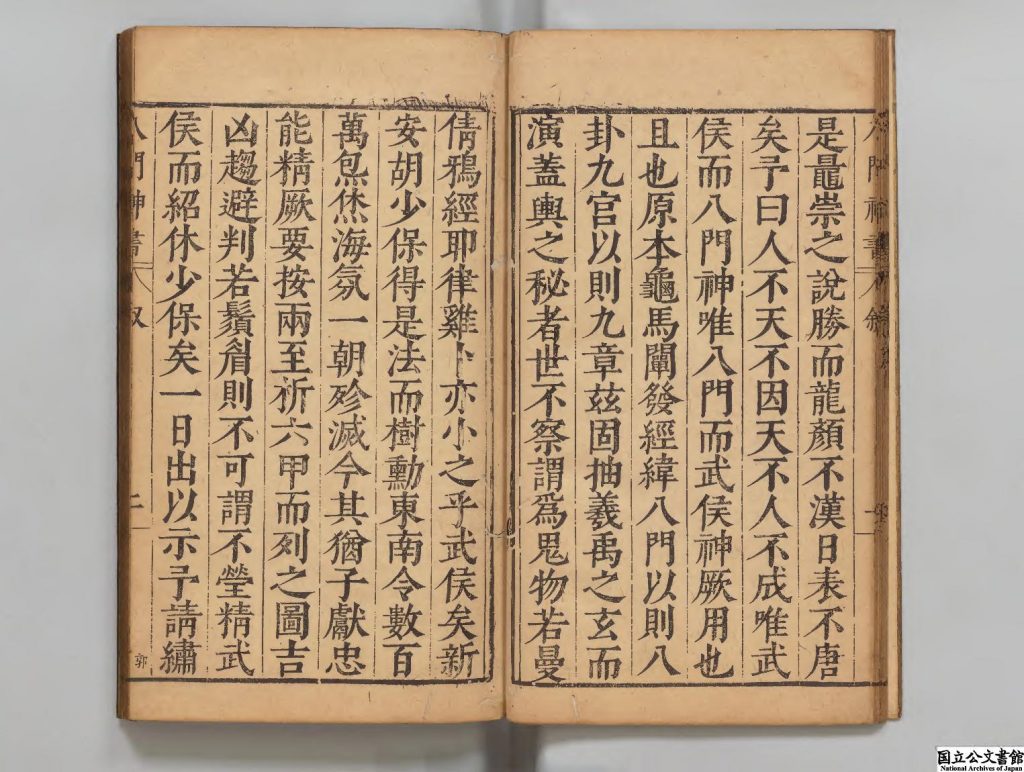 是鼂祟之說勝而龍顏不漢日表不唐
矣予曰人不天不因天不人不成唯武
侯而八門神唯八門而武侯神厥用也
且也原本龜馬闡發經緯八門以則八
卦九宮以則九章玆固抽羲禹之玄而
演蓋輿之秘者世不察謂爲鬼物若曼
倩鴉經耶律雞卜亦小之乎武侯矣新
安胡少保得是法而樹勳東南令數百
萬炰烋海氛一朝殄滅今其猶子獻忠
能精厥要按兩至祈六甲而列之圖吉
凶趨避判若鬚眉則不可謂不瑩精武
侯而紹休少保矣一日出以示予請繡
八門神書
叙
二
郭
国立公文書館
National Archives of Japan